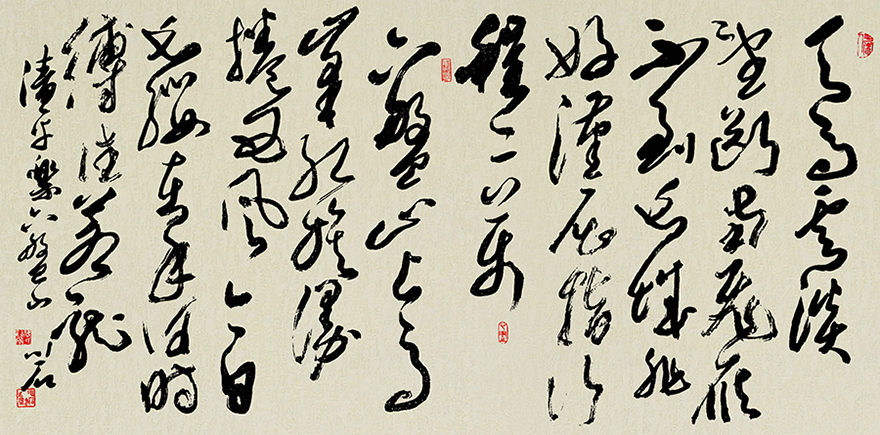 天高雲淡
望斷南飛雁
不到長城非
好漢屈指行
程二萬
六盤山上高
峯紅旗漫
捲西風今日
長纓在手何時
縛住蒼龍
清平樂六盤山